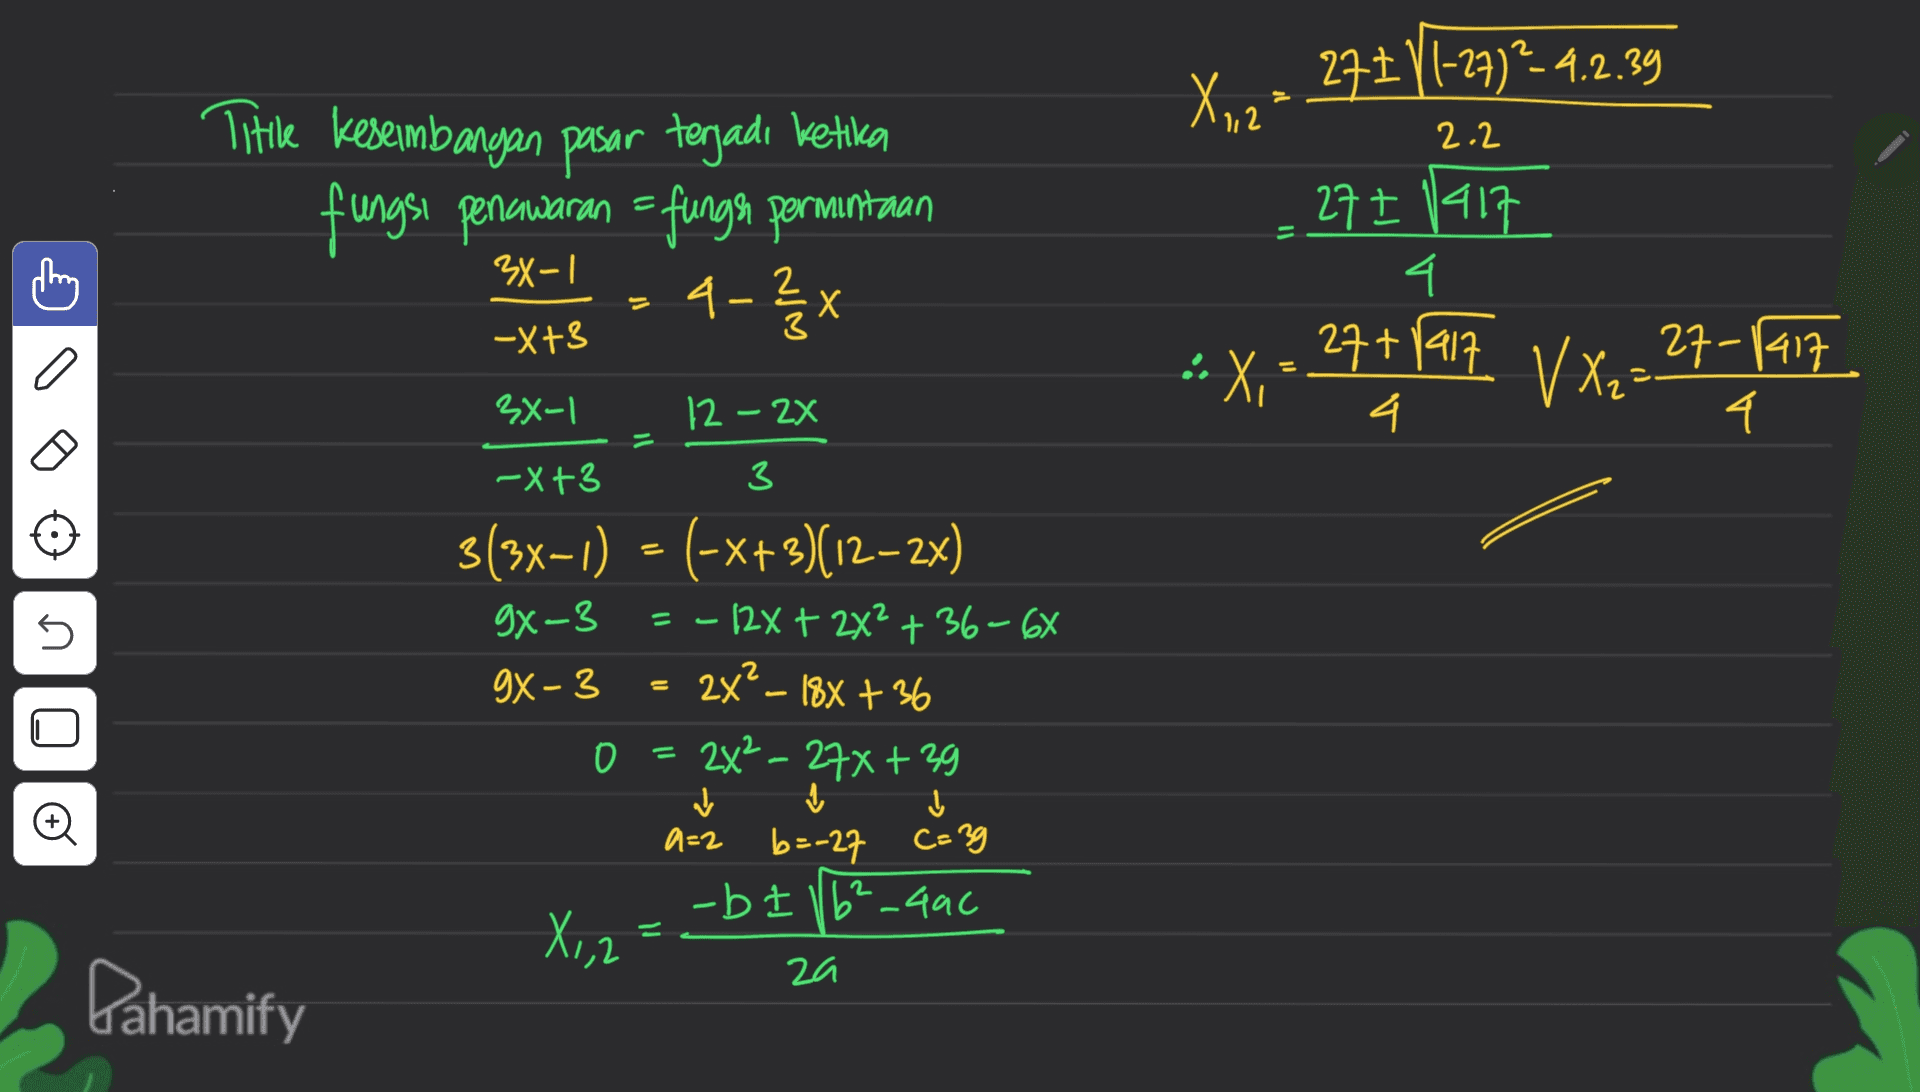 Titik keseimbangan pasar terjadi ketika
fungsi penawaran = fungsi permintaan
3x-1 / -x+3 = 4 - 2/3 x
3x-1 / -x+3 = 12-2x / 3
3(3x-1) = (-x+3)(12-2x)
9x-3 = -12x + 2x² + 36 - 6x
9x-3 = 2x² - 18x + 36
0 = 2x² - 27x + 39
↓ ↓ ↓
a=2 b=-27 c=39
X1,2 = -b ± √b²-4ac / 2a
X1,2 = 27 ± √(-27)²-4.2.39 / 2.2
= 27 ± √417 / 4
∴ X1 = 27+√417 / 4 V X2 = 27-√417 / 4
Pahamify